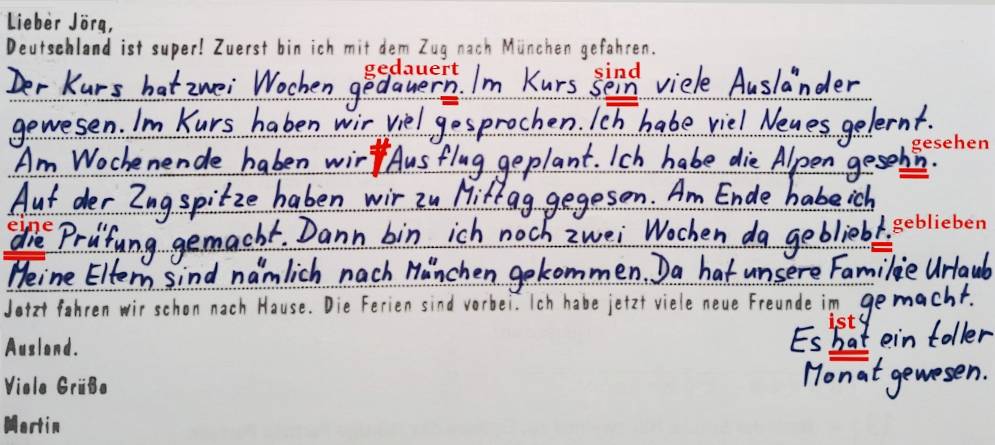 Lieber Jörg,
Deutschland ist super! Zuerst bin ich mit dem Zug nach München gefahren.
gedauert sind
Der Kurs hat zwei Wochen gedauern. Im Kurs sein viele Ausländer
gewesen. Im Kurs haben wir viel gesprochen. Ich habe viel Neues gelernt.
gesehen
Am Wochenende haben wir # Ausflug geplant. Ich habe die Alpen gesehn.
Auf der Zugspitze haben wir zu Mittag gegesen. Am Ende habe ich
eine geblieben
die Prüfung gemacht. Dann bin ich noch zwei Wochen da gebliebt.
Meine Eltern sind nämlich nach München gekommen. Da hat unsere Familie Urlaub
Jetzt fahren wir schon nach Hause. Die Ferien sind vorbei. Ich habe jetzt viele neue Freunde im gemacht.
ist
Ausland. Es hat ein toller
Viele Grüße Monat gewesen.
Martin